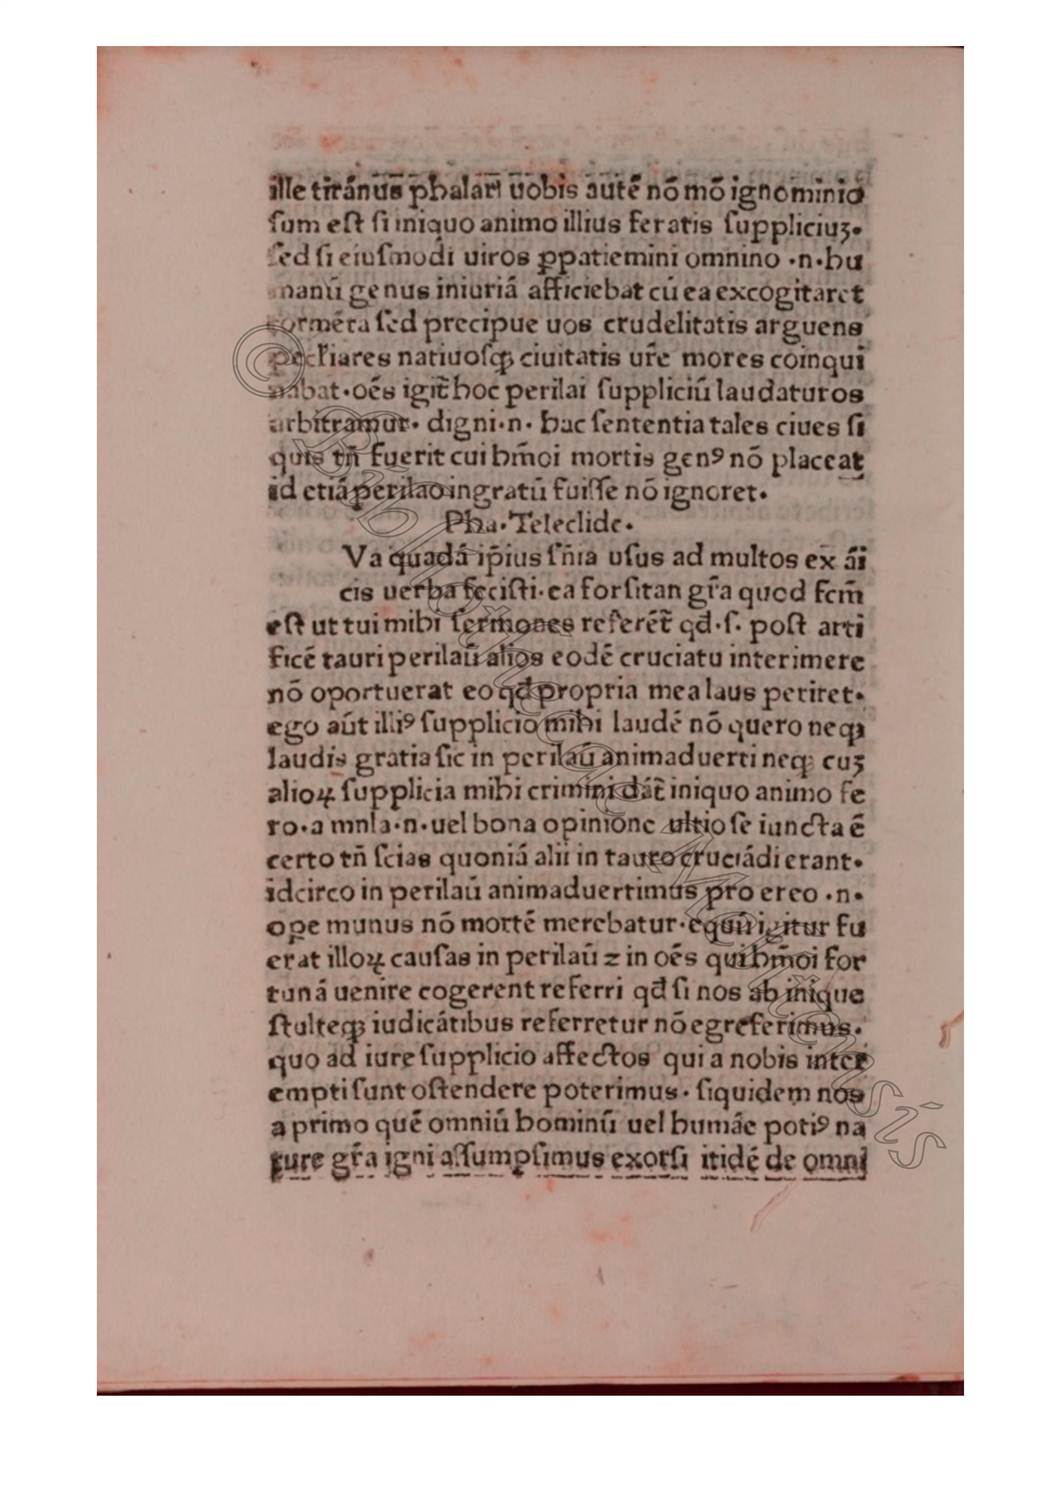 ille tiránus phaları uobis auté nō mō ignominio
ſum eſt ſi iniquo animo illius feratis ſuppliciuʒ.
ſed ſi eiuſmodi uiros ꝑpatiemini omnino ·n·hu
manū genus iniuriā afficiebat cū ea excogitaret
tormēta ſed precipue uos crudelitatis arguens
natiuoſqꝫ ciuitatis ur̄e mores coinqui
nabat·oēs igit̄ hoc perilai ſuppliciū laudaturos
arbitramur· digni·n· hac ſententia tales ciues ſi
quis tn̄ fuerit cui hm̄oi mortis genꝰ nō placeat
id etiā perilao ingratū fuiſſe nō ignoret.
Pha·Teleclide·
Va quadā ip̄ius ſn̄ia uſus ad multos ex āi
cis uerba feciſti·ea forſitan gr̄a quod fcm̄
eſt ut tui mihi ſermones referēt̄ qđ·ſ· poſt arti
ficē tauri perilaū alios eodē cruciatu interimere
nō oportuerat eo qđ propria mea laus periret.
ego aūt illiꝰ ſupplicio mihi laudē nō quero neqꝫ
laudis gratia ſic in perilaū animaduerti neqꝫ cuʒ
alioꝝ ſupplicia mihi crimini dāt̄ iniquo animo fe
ro·a mnla·n·uel bona opinione ultio ſe iuncta ē
certo tn̄ ſcias quoniā alii in tauro cruciādi erant.
idcirco in perilaū animaduertimus pro ereo ·n·
ope munus nō mortē merebatur·equū igitur fu
erat illoꝝ cauſas in perilaū ⁊ in oēs qui hm̄oi for
tunā uenire cogerent referri qđ ſi nos ab inique
ſtulteqꝫ iudicātibus referretur nō egreferimus.
quo ad iure ſupplicio affectos qui a nobis inter
empti ſunt oſtendere poterimus· ſiquidem nos
a primo quē omniū hominū uel humāe potiꝰ na
ture gr̄a igni aſſumpſimus exorſi itidē de omni
© Bibliotheca Mexicansis